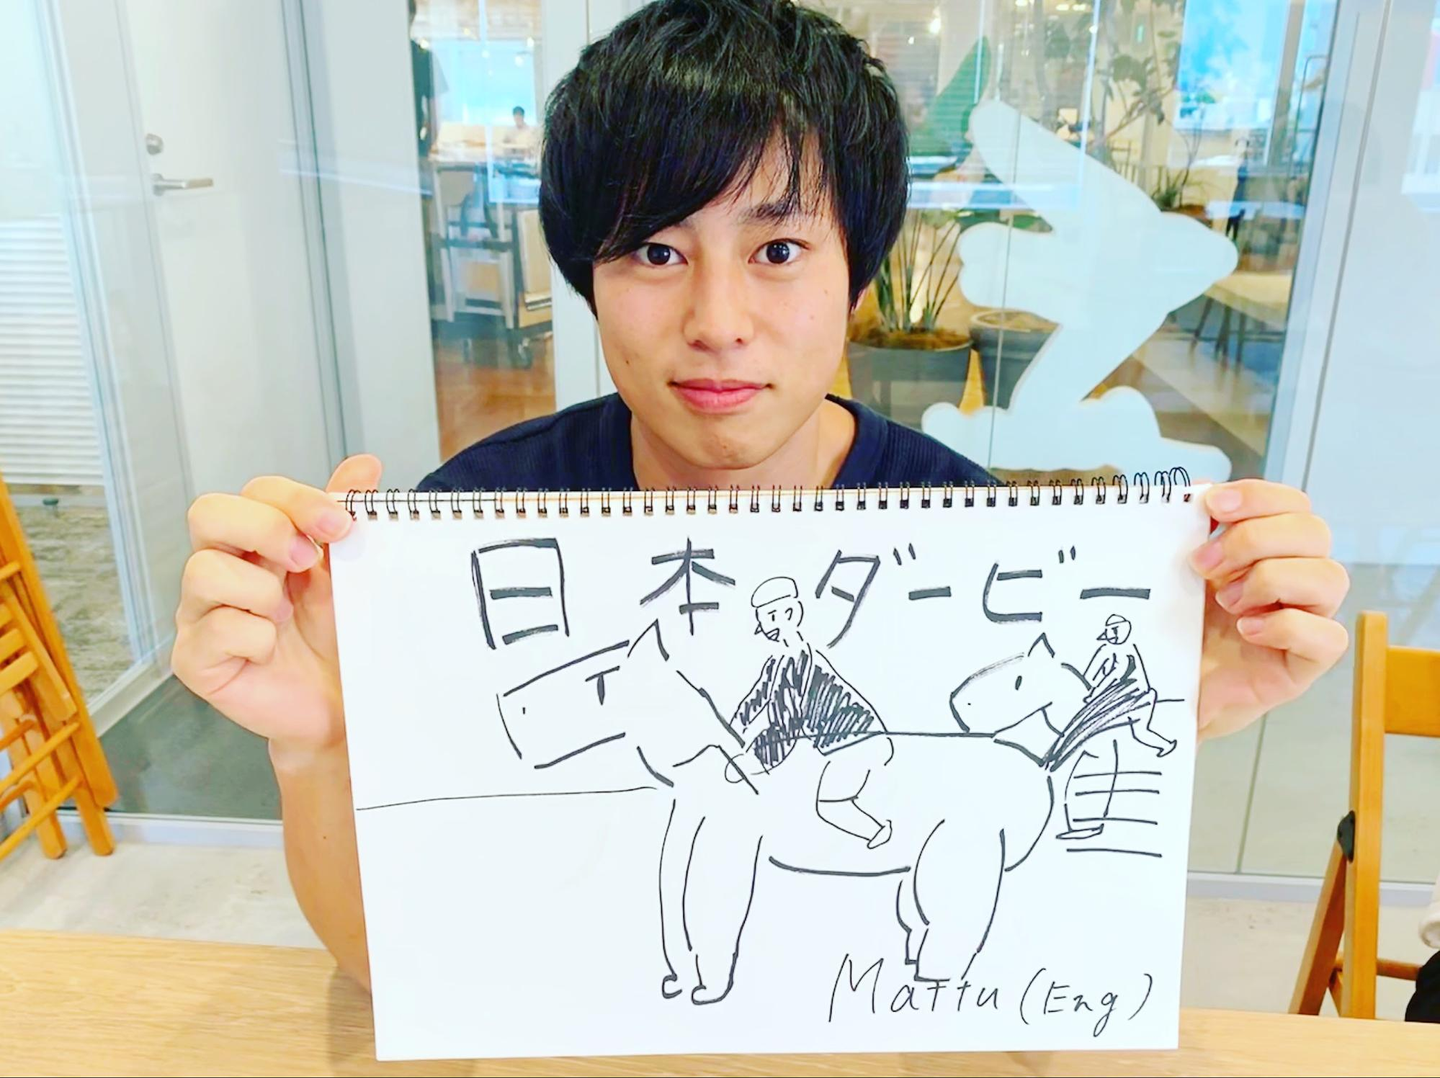 日本ダービー
Mattu (Eng)